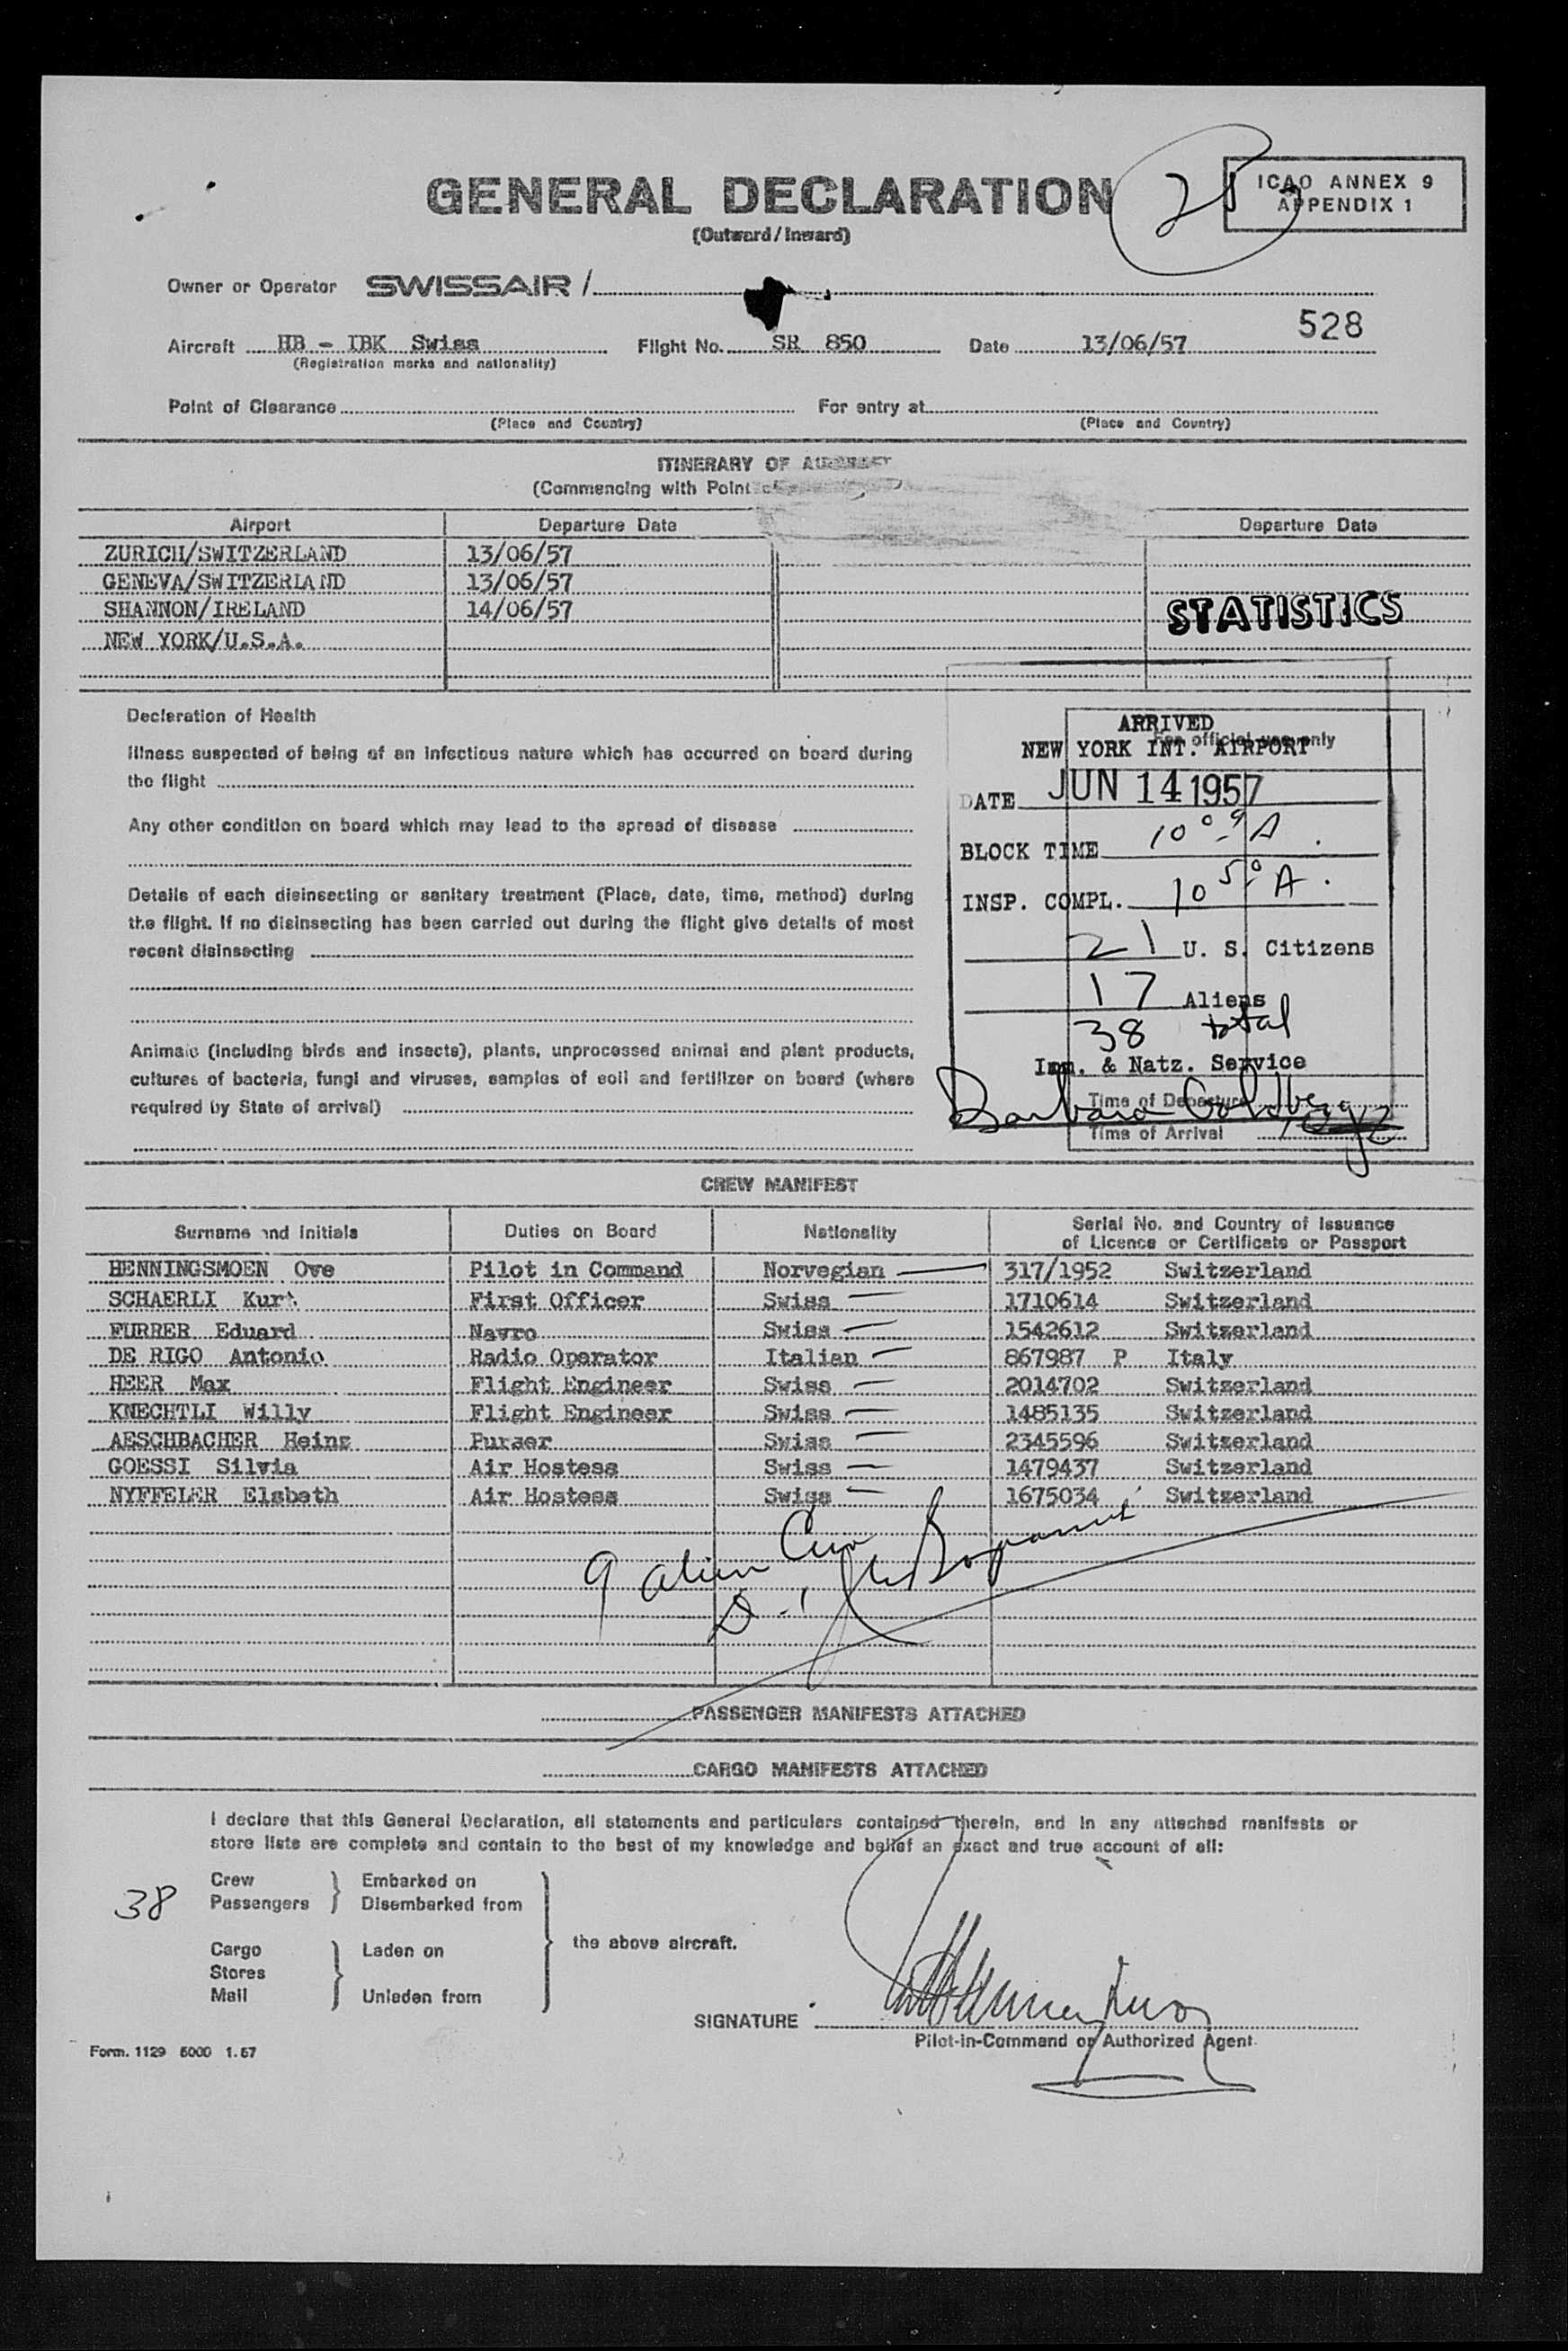 GENERAL DECLARATION
(Outward/Inward)
25
ICAO ANNEX 9
APPENDIX 1
Owner or Operator SWISSAIR /
528
Aircraft HB - IBK Swiss Flight No. SR 850 Date 13/06/57
(Registration marks and nationality)
Point of Clearance For entry at
(Place and Country) (Place and Country)
ITINERARY OF AIRCRAFT
(Commencing with Point
Airport Departure Date Departure Date
ZURICH/SWITZERLAND 13/06/57
GENEVA/SWITZERLAND 13/06/57
SHANNON/IRELAND 14/06/57
NEW YORK/U.S.A.
STATISTICS
Declaration of Health
Illness suspected of being of an infectious nature which has occurred on board during
the flight
Any other condition on board which may lead to the spread of disease
Details of each disinsecting or sanitary treatment (Place, date, time, method) during
the flight. If no disinsecting has been carried out during the flight give details of most
recent disinsecting
Animals (including birds and insects), plants, unprocessed animal and plant products,
cultures of bacteria, fungi and viruses, samples of soil and fertilizer on board (where
required by State of arrival)
For official use only
ARRIVED
NEW YORK INT. AIRPORT
DATE JUN 14 1957
BLOCK TIME 10 09 A.
INSP. COMPL. 10 50 A.
21 U. S. Citizens
17 Aliens
38 total
Imm. & Natz. Service
Barbara Goldberg
Time of Departure
Time of Arrival
CREW MANIFEST
Surname and Initials Duties on Board Nationality Serial No. and Country of Issuance
of Licence or Certificate or Passport
HENNINGSMOEN Ove Pilot in Command Norwegian 317/1952 Switzerland
SCHAERLI Kurt First Officer Swiss 1710614 Switzerland
FURRER Eduard Navro Swiss 1542612 Switzerland
DE RIGO Antonio Radio Operator Italian 867987 P Italy
HEER Max Flight Engineer Swiss 2014702 Switzerland
KNECHTLI Willy Flight Engineer Swiss 1485135 Switzerland
AESCHBACHER Heinz Purser Swiss 2345596 Switzerland
GOESSI Silvia Air Hostess Swiss 1479437 Switzerland
NYFFELER Elsbeth Air Hostess Swiss 1675034 Switzerland
9 alien Crew
D-1
PASSENGER MANIFESTS ATTACHED
CARGO MANIFESTS ATTACHED
I declare that this General Declaration, all statements and particulars contained therein, and in any attached manifests or
store lists are complete and contain to the best of my knowledge and belief an exact and true account of all:
38
Crew Embarked on
Passengers Disembarked from
the above aircraft.
Cargo Laden on
Stores
Mail Unladen from
SIGNATURE
Pilot-in-Command or Authorized Agent
Form. 1129 5000 1.57